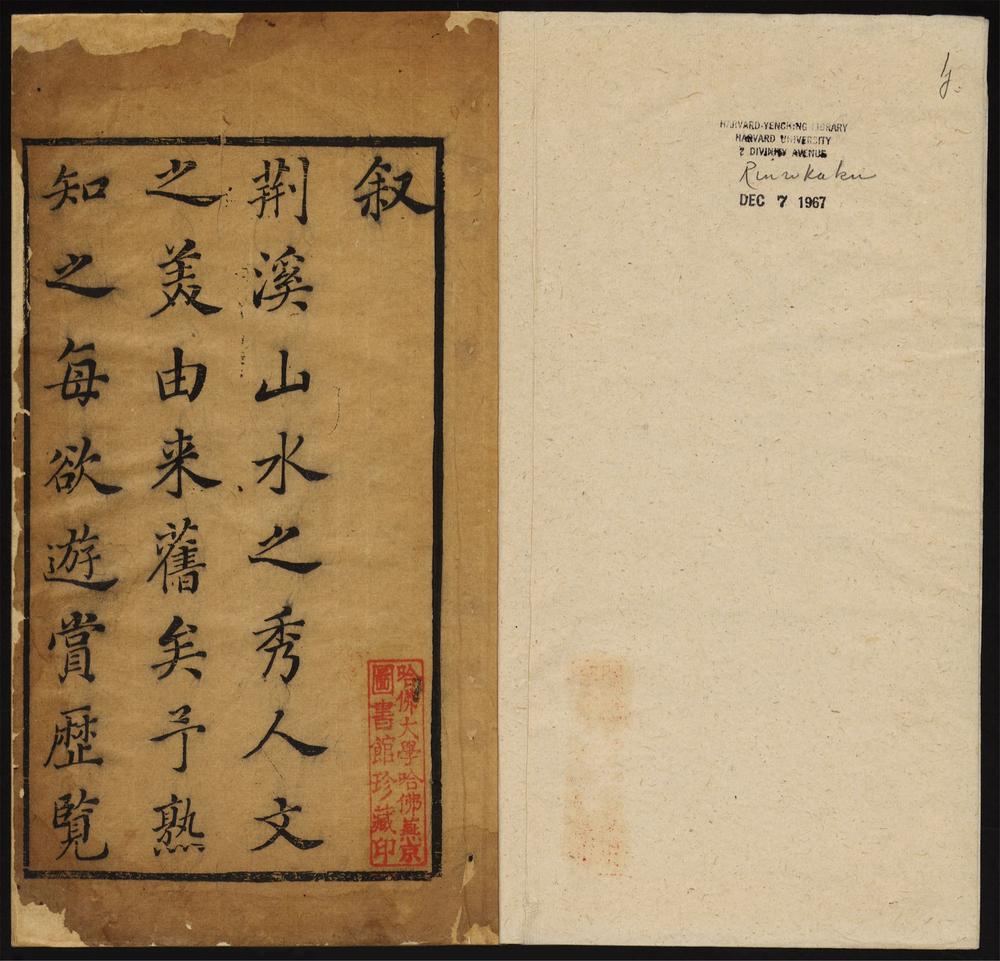 叙
荆溪山水之秀人文
之美由来舊矣予熟
知之每欲遊賞歴覧
哈佛大學哈佛燕京
圖書館珍藏印
HARVARD-YENCHING LIBRARY
HARVARD UNIVERSITY
2 DIVINITY AVENUE
Rinrokaku
DEC 7 1967